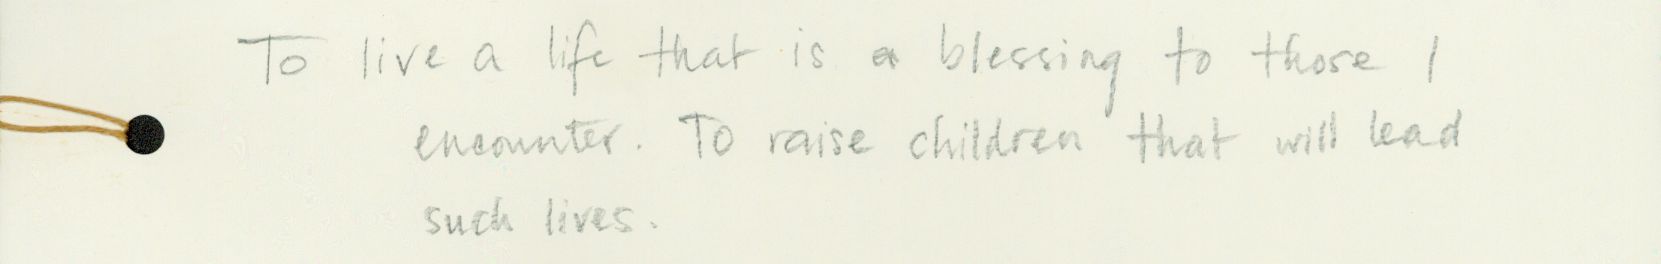 To live a life that is a blessing to those I
encounter. To raise children that will lead
such lives.